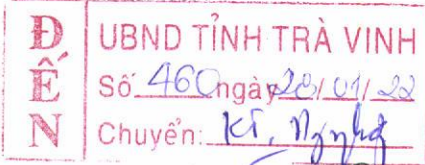 ĐẾN
UBND TỈNH TRÀ VINH
Số: 460 ngày 28/01/22
Chuyển: KT,